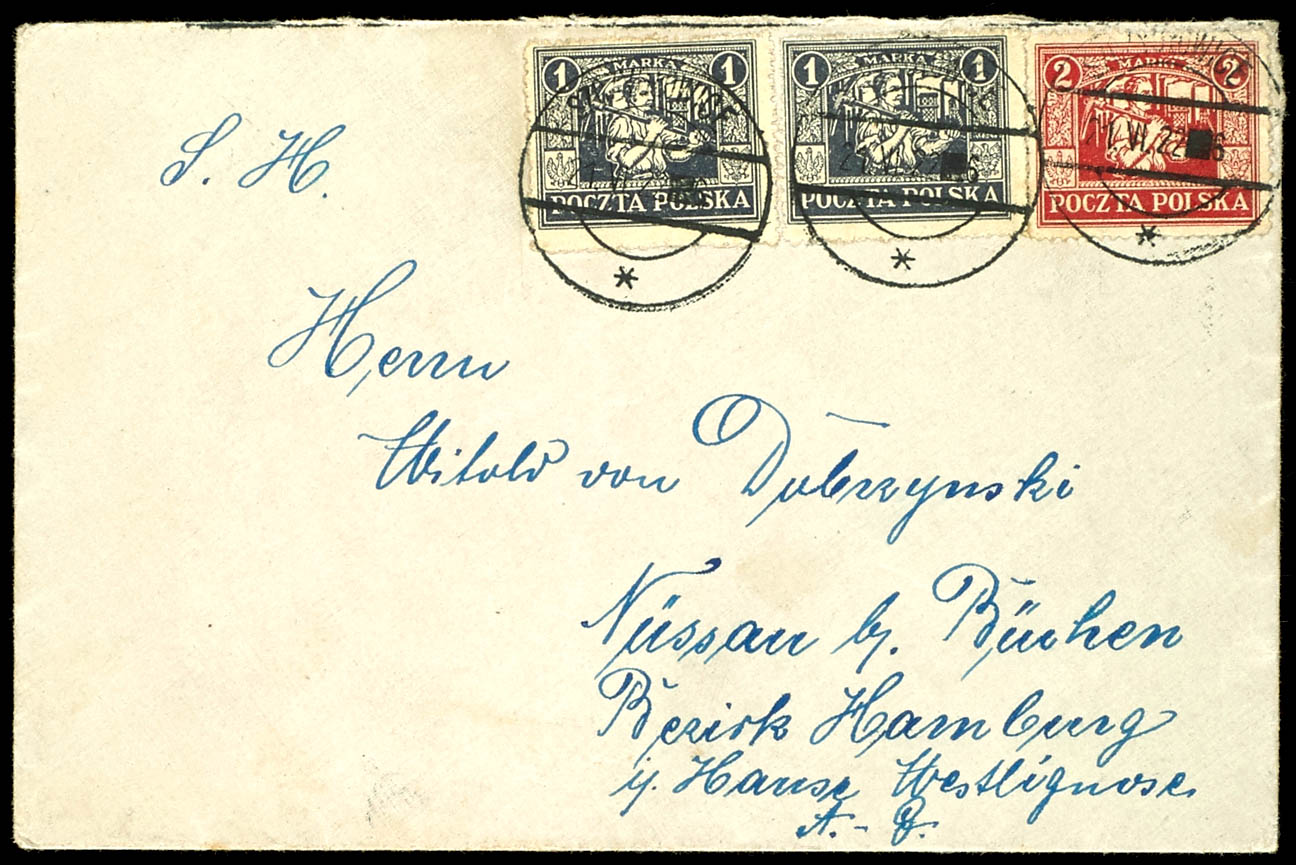 1 MARKA 1
POCZTA POLSKA
1 MARKA 1
POCZTA POLSKA
2 MARKA 2
POCZTA POLSKA
VI 22
S. H.
Herrn
Witold von Dobrzynski
Nüssau b/. Büchen
Bezirk Hamburg
i/. Hause Westlignose
A.-G.